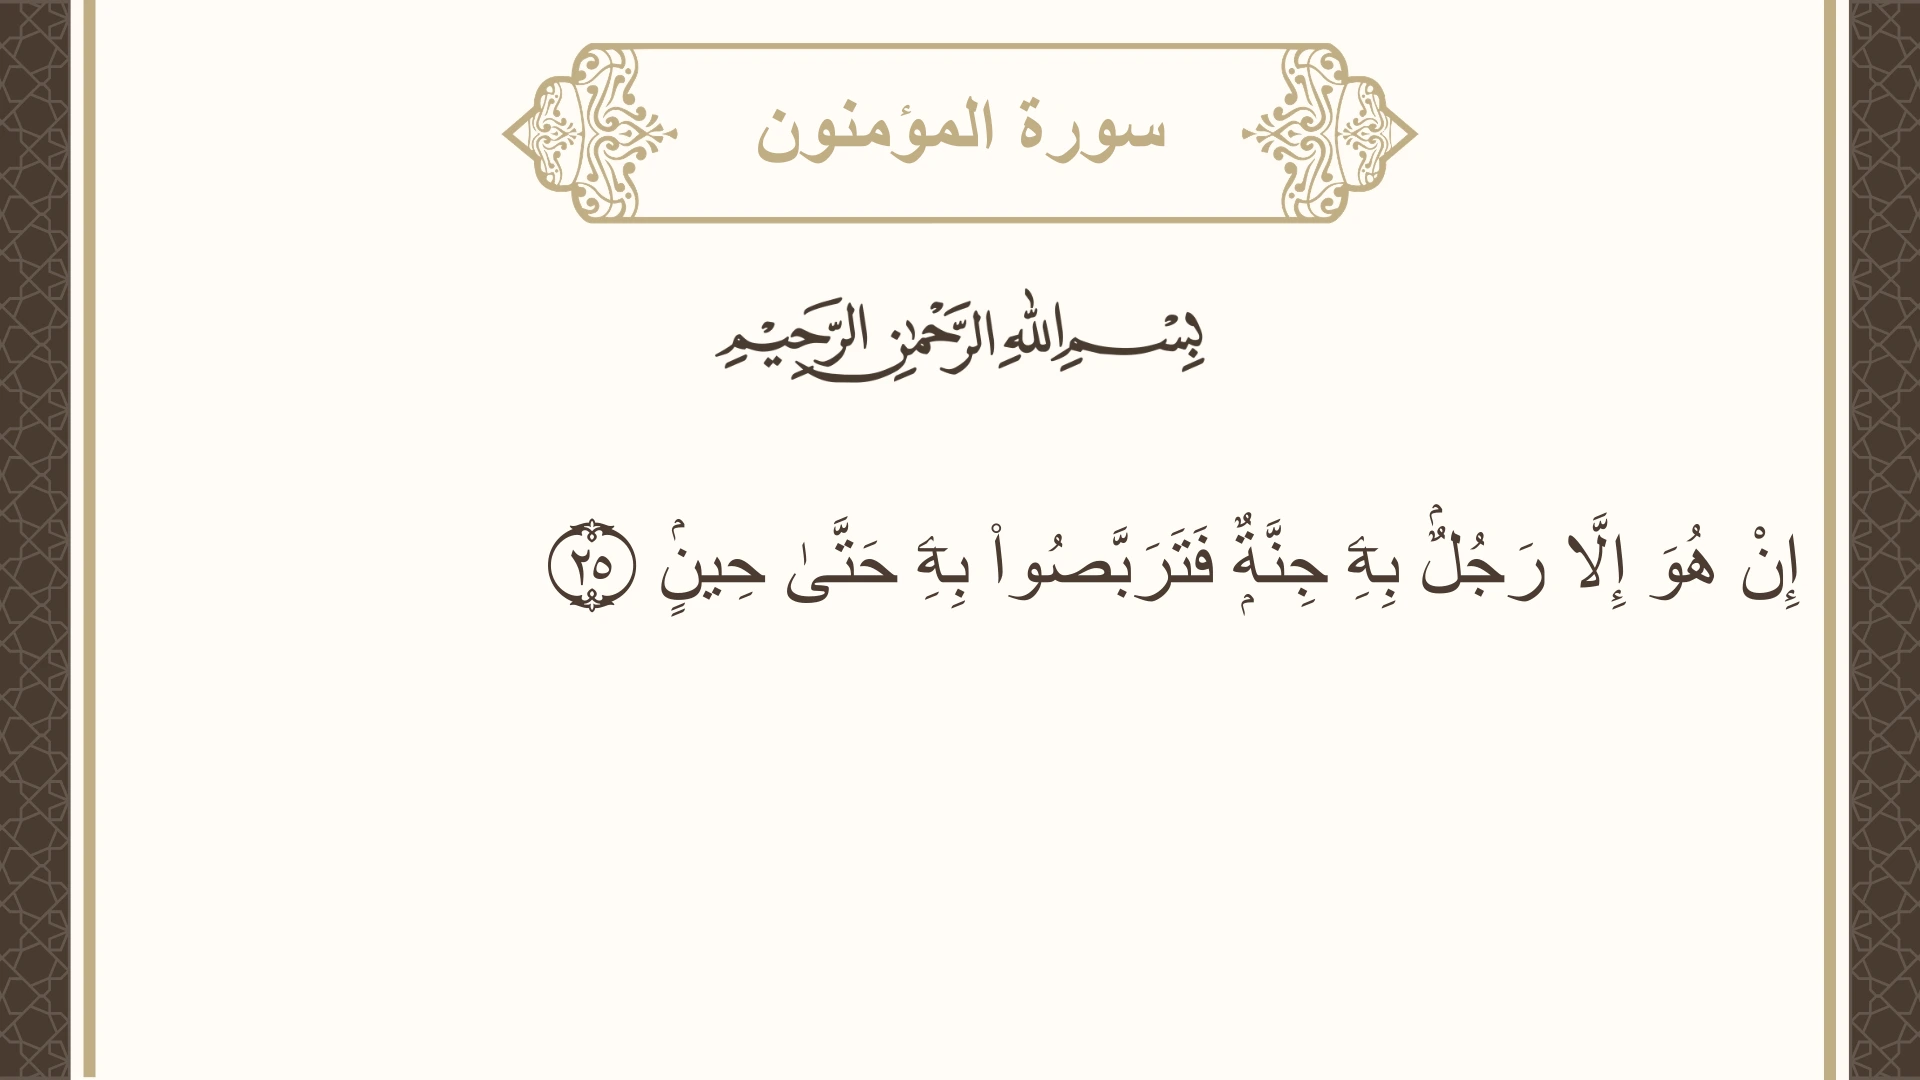 سورة المؤمنون
بِسْمِ اللهِ الرَّحْمٰنِ الرَّحِيْمِ
إِنْ هُوَ إِلَّا رَجُلٌۢ بِهِۦ جِنَّةٌۭ فَتَرَبَّصُوا۟ بِهِۦ حَتَّىٰ حِينٍۢ ٢٥